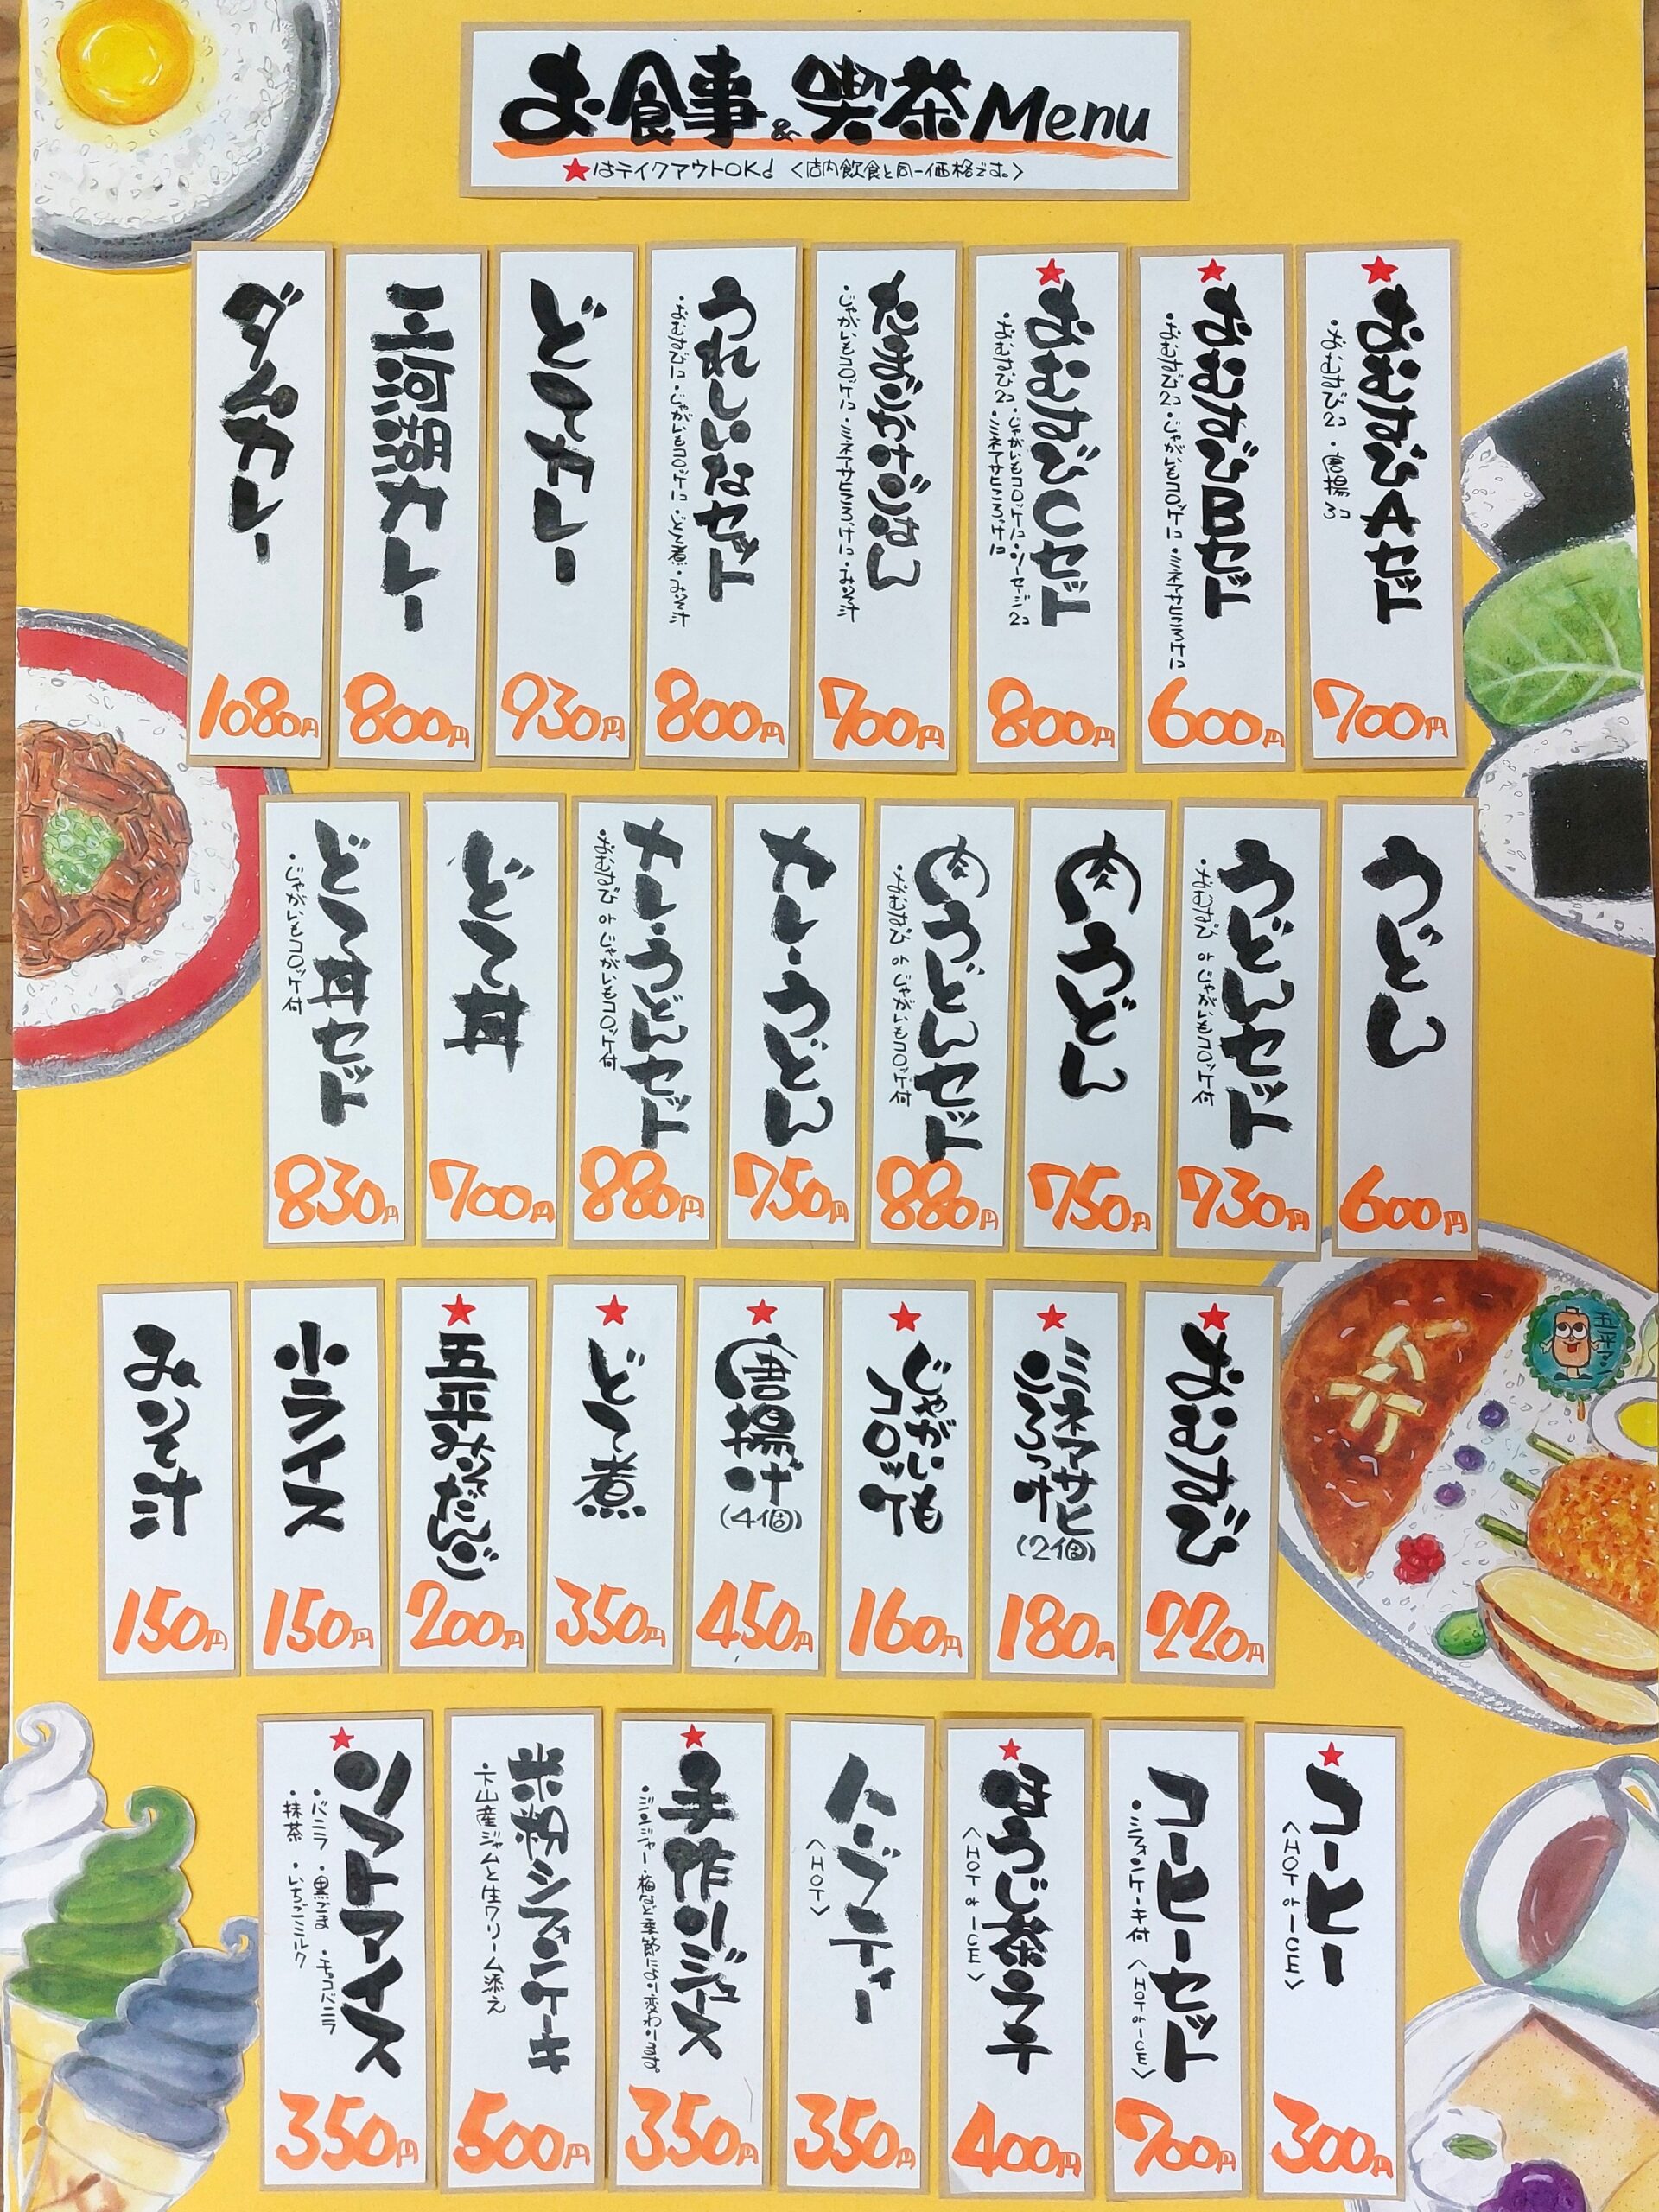 お食事&喫茶Menu
★はテイクアウトOKd 〈店内飲食と同一価格です。〉
★おむすびAセット
・おむすび2コ ・唐揚3コ
700円
★おむすびBセット
・おむすび2コ・じゃがいもコロッケ1コ・ミネアサヒころっけ1コ
600円
★おむすびCセット
・おむすび2コ・じゃがいもコロッケ1コ・ソーセージ2コ
・ミネアサヒころっけ1コ
800円
たまごかけごはん
・じゃがいもコロッケ1コ・ミネアサヒころっけ1コ・みそ汁
700円
うれしいなセット
・おむすび1コ・じゃがいもコロッケ1コ・どて煮・みそ汁
800円
どてカレー
930円
三河湖カレー
800円
ダムカレー
1080円
うどん
600円
うどんセット
・おむすび or じゃがいもコロッケ付
730円
肉うどん
750円
肉うどんセット
・おむすび or じゃがいもコロッケ付
880円
カレーうどん
750円
カレーうどんセット
・おむすび or じゃがいもコロッケ付
880円
どて丼
700円
どて丼セット
・じゃがいもコロッケ付
830円
★おむすび
220円
★ミネアサヒ
ころっけ
(2個)
180円
★じゃがいも
コロッケ
160円
★唐揚げ
(4個)
450円
★どて煮
350円
★五平みたらしだんご
200円
小ライス
150円
みそ汁
150円
五平マン
★コーヒー
〈HOT or ICE〉
300円
コーヒーセット
・シフォンケーキ付 〈HOT or ICE〉
700円
★ほうじ茶ラテ
〈HOT or ICE〉
400円
ハーブティー
〈HOT〉
350円
★手作りジュース
・ジンジャー・梅など季節により変わります。
350円
米粉シフォンケーキ
・下山産ジャムと生クリーム添え
500円
★ソフトアイス
・バニラ ・黒ごま ・チョコバニラ
・抹茶 ・いちごミルク
350円